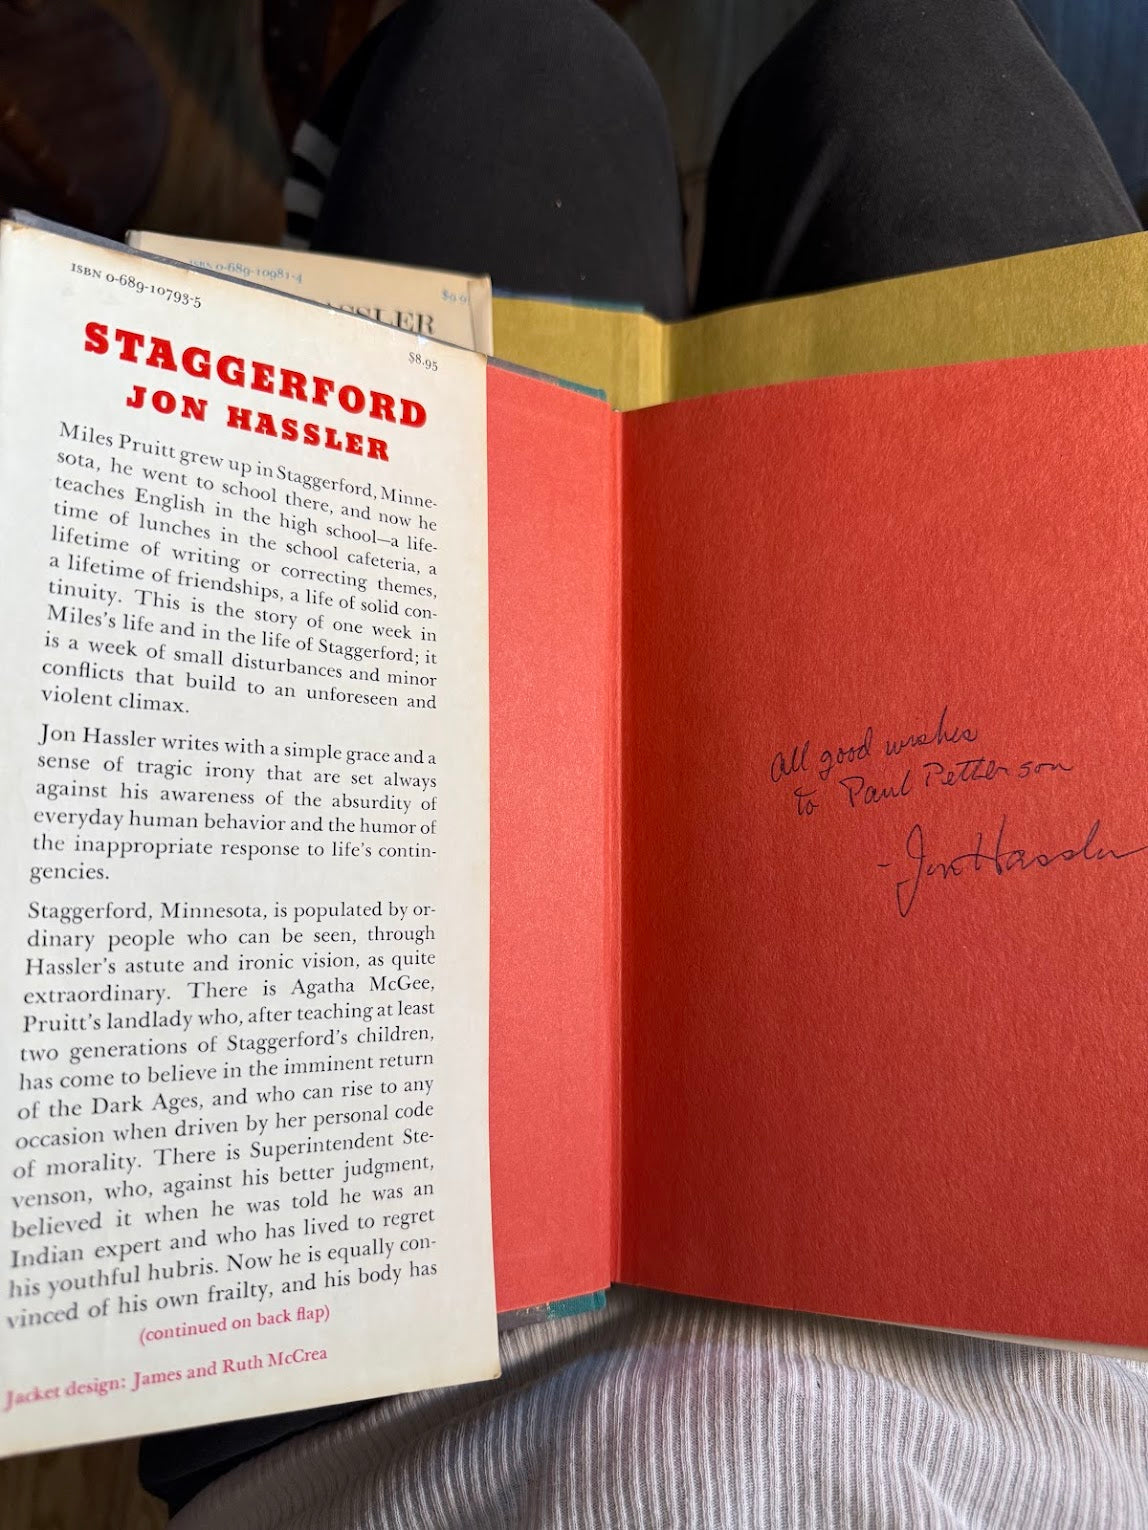 ISBN 0-689-10793-5
$8.95
STAGGERFORD
JON HASSLER
Miles Pruitt grew up in Staggerford, Minne-
sota, he went to school there, and now he
teaches English in the high school—a life-
time of lunches in the school cafeteria, a
lifetime of writing or correcting themes,
a lifetime of friendships, a life of solid con-
tinuity. This is the story of one week in
Miles's life and in the life of Staggerford; it
is a week of small disturbances and minor
conflicts that build to an unforeseen and
violent climax.
Jon Hassler writes with a simple grace and a
sense of tragic irony that are set always
against his awareness of the absurdity of
everyday human behavior and the humor of
the inappropriate response to life's contin-
gencies.
Staggerford, Minnesota, is populated by or-
dinary people who can be seen, through
Hassler's astute and ironic vision, as quite
extraordinary. There is Agatha McGee,
Pruitt's landlady who, after teaching at least
two generations of Staggerford's children,
has come to believe in the imminent return
of the Dark Ages, and who can rise to any
occasion when driven by her personal code
of morality. There is Superintendent Ste-
venson, who, against his better judgment,
believed it when he was told he was an
Indian expert and who has lived to regret
his youthful hubris. Now he is equally con-
vinced of his own frailty, and his body has
(continued on back flap)
Jacket design: James and Ruth McCrea
ISBN 0-689-10981-4
$9.9
ASSLER
All good wishes
to Paul Petterson
- Jon Hassler